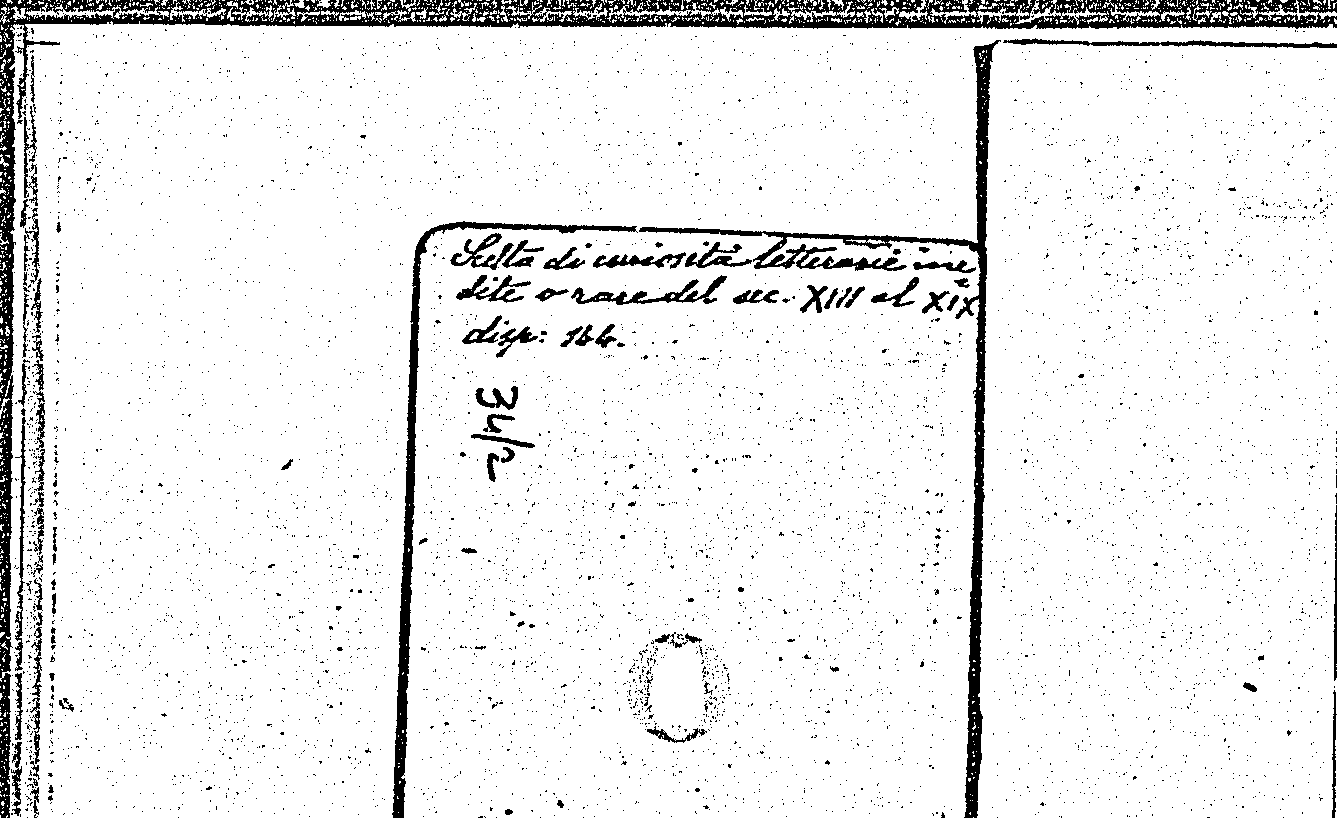 Scelta di curiosità letterarie ine
dite o rare del sec. XIII al XIX
disp: 166.
34/2